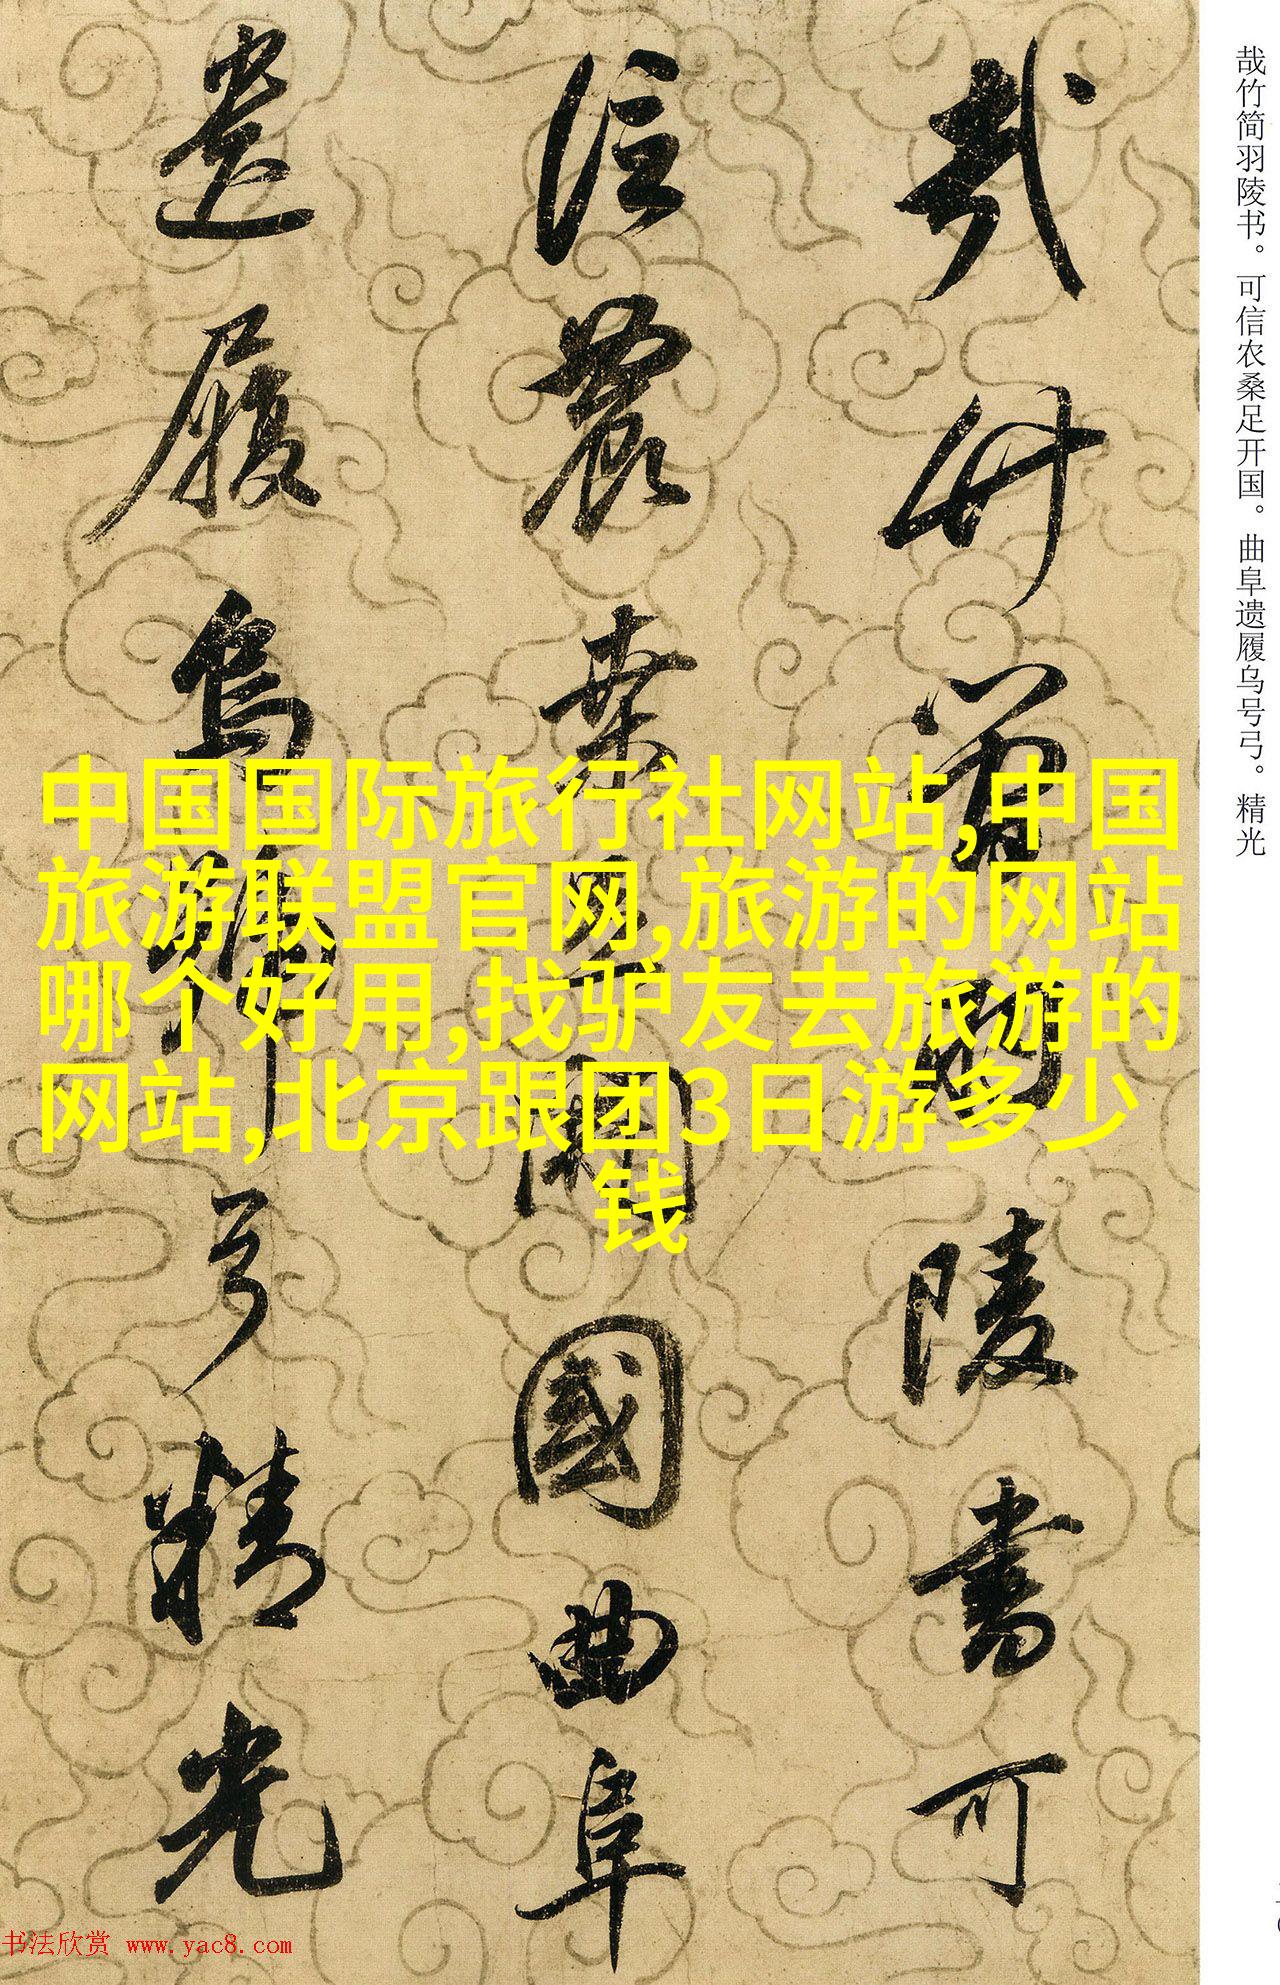 哉竹简羽陵书。可信农桑足开国。曲阜遗履乌号弓。精光
哉竹簡羽陵書可
信農桑足開國曲阜
遺履烏號弓精光
中国国际旅行社网站,中国
旅游联盟官网,旅游的网站
哪个好用,找驴友去旅游的
网站,北京跟团3日游多少
钱
书法欣赏 www.yac8.com